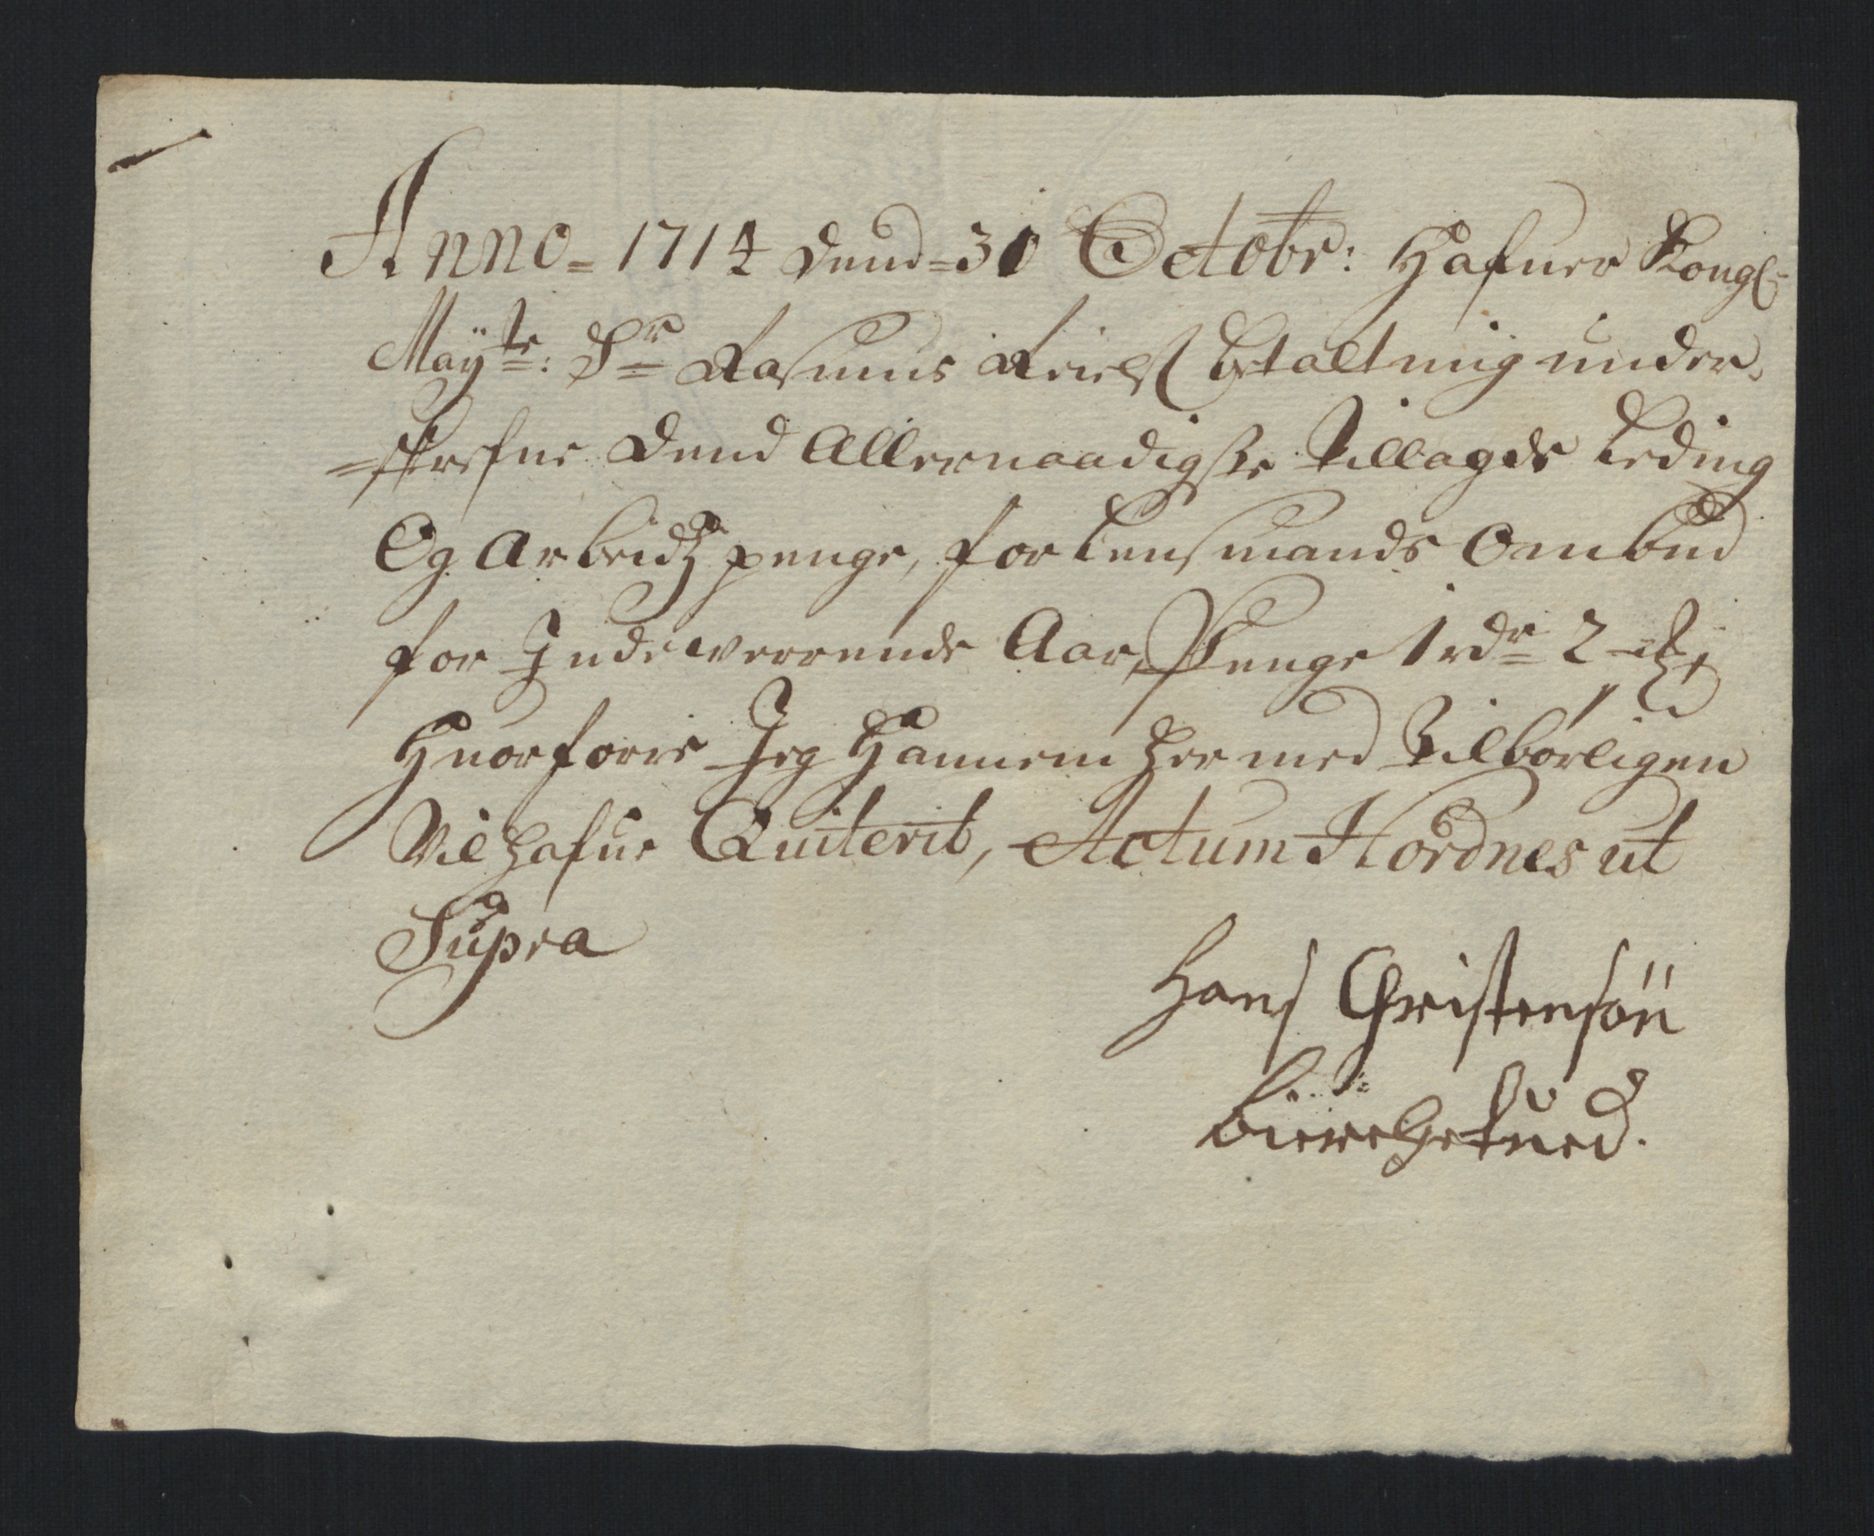 Anno = 1714 dend = 30 Octobr: Hafuer Kongl:
Mayte: Sr Rasmus betalt mig under,
=skrefne dend Allernaadigste Tillagde Leding
Og Arbeidtz penge, for Lensmands Ombud
for Indeverrende Aar, Penge 1 rdr 2
Huorforre Jeg Hannem her med Tilbørligen
Vil hafue Quiterit, Actum Nordnes ut
Supra
Hans Christensøn